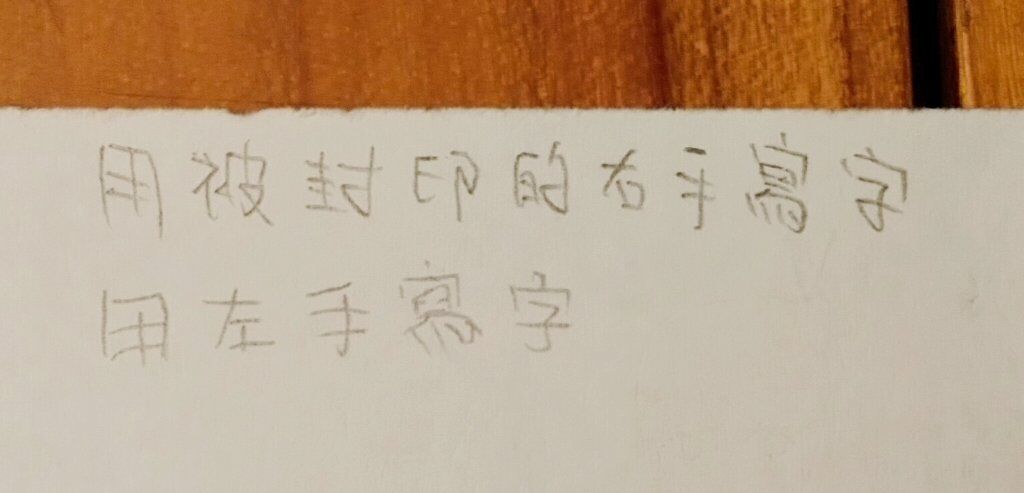 用被封印的右手寫字
用左手寫字